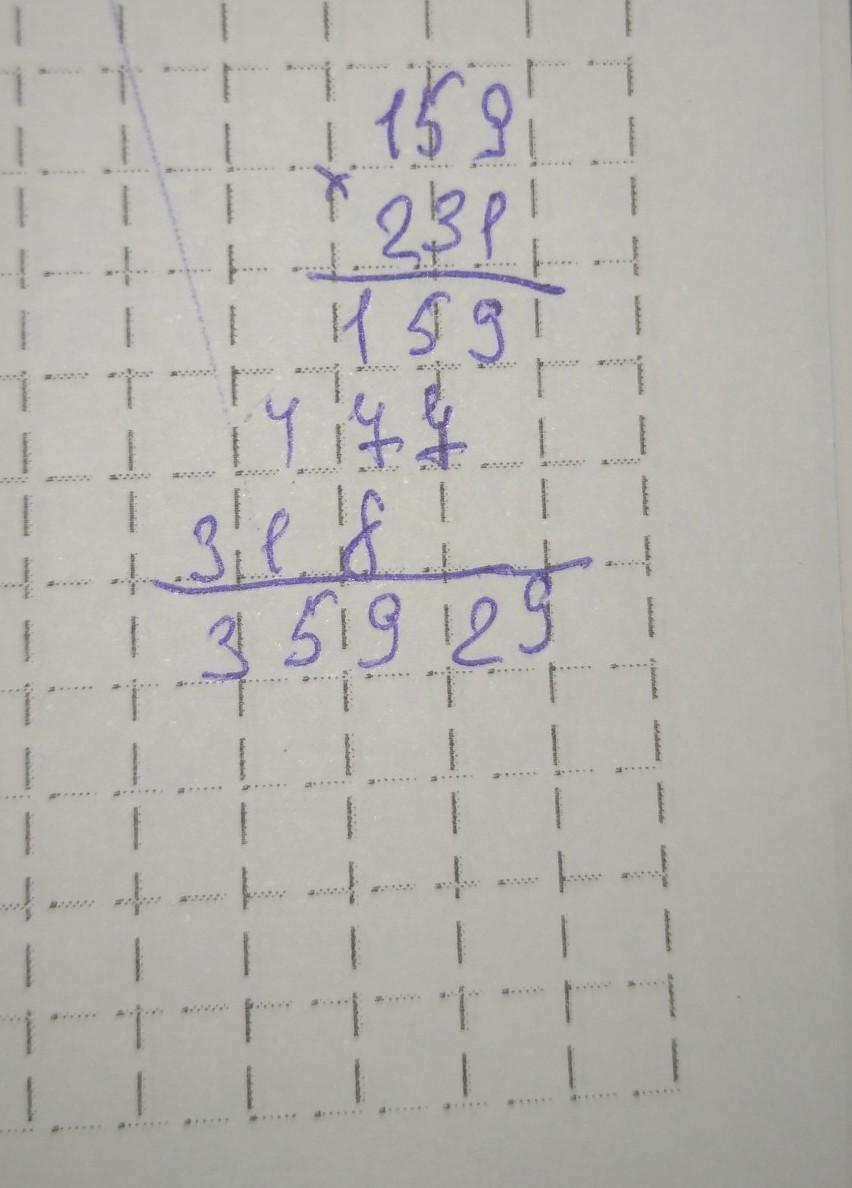 159
×
231
159
477
318
35929